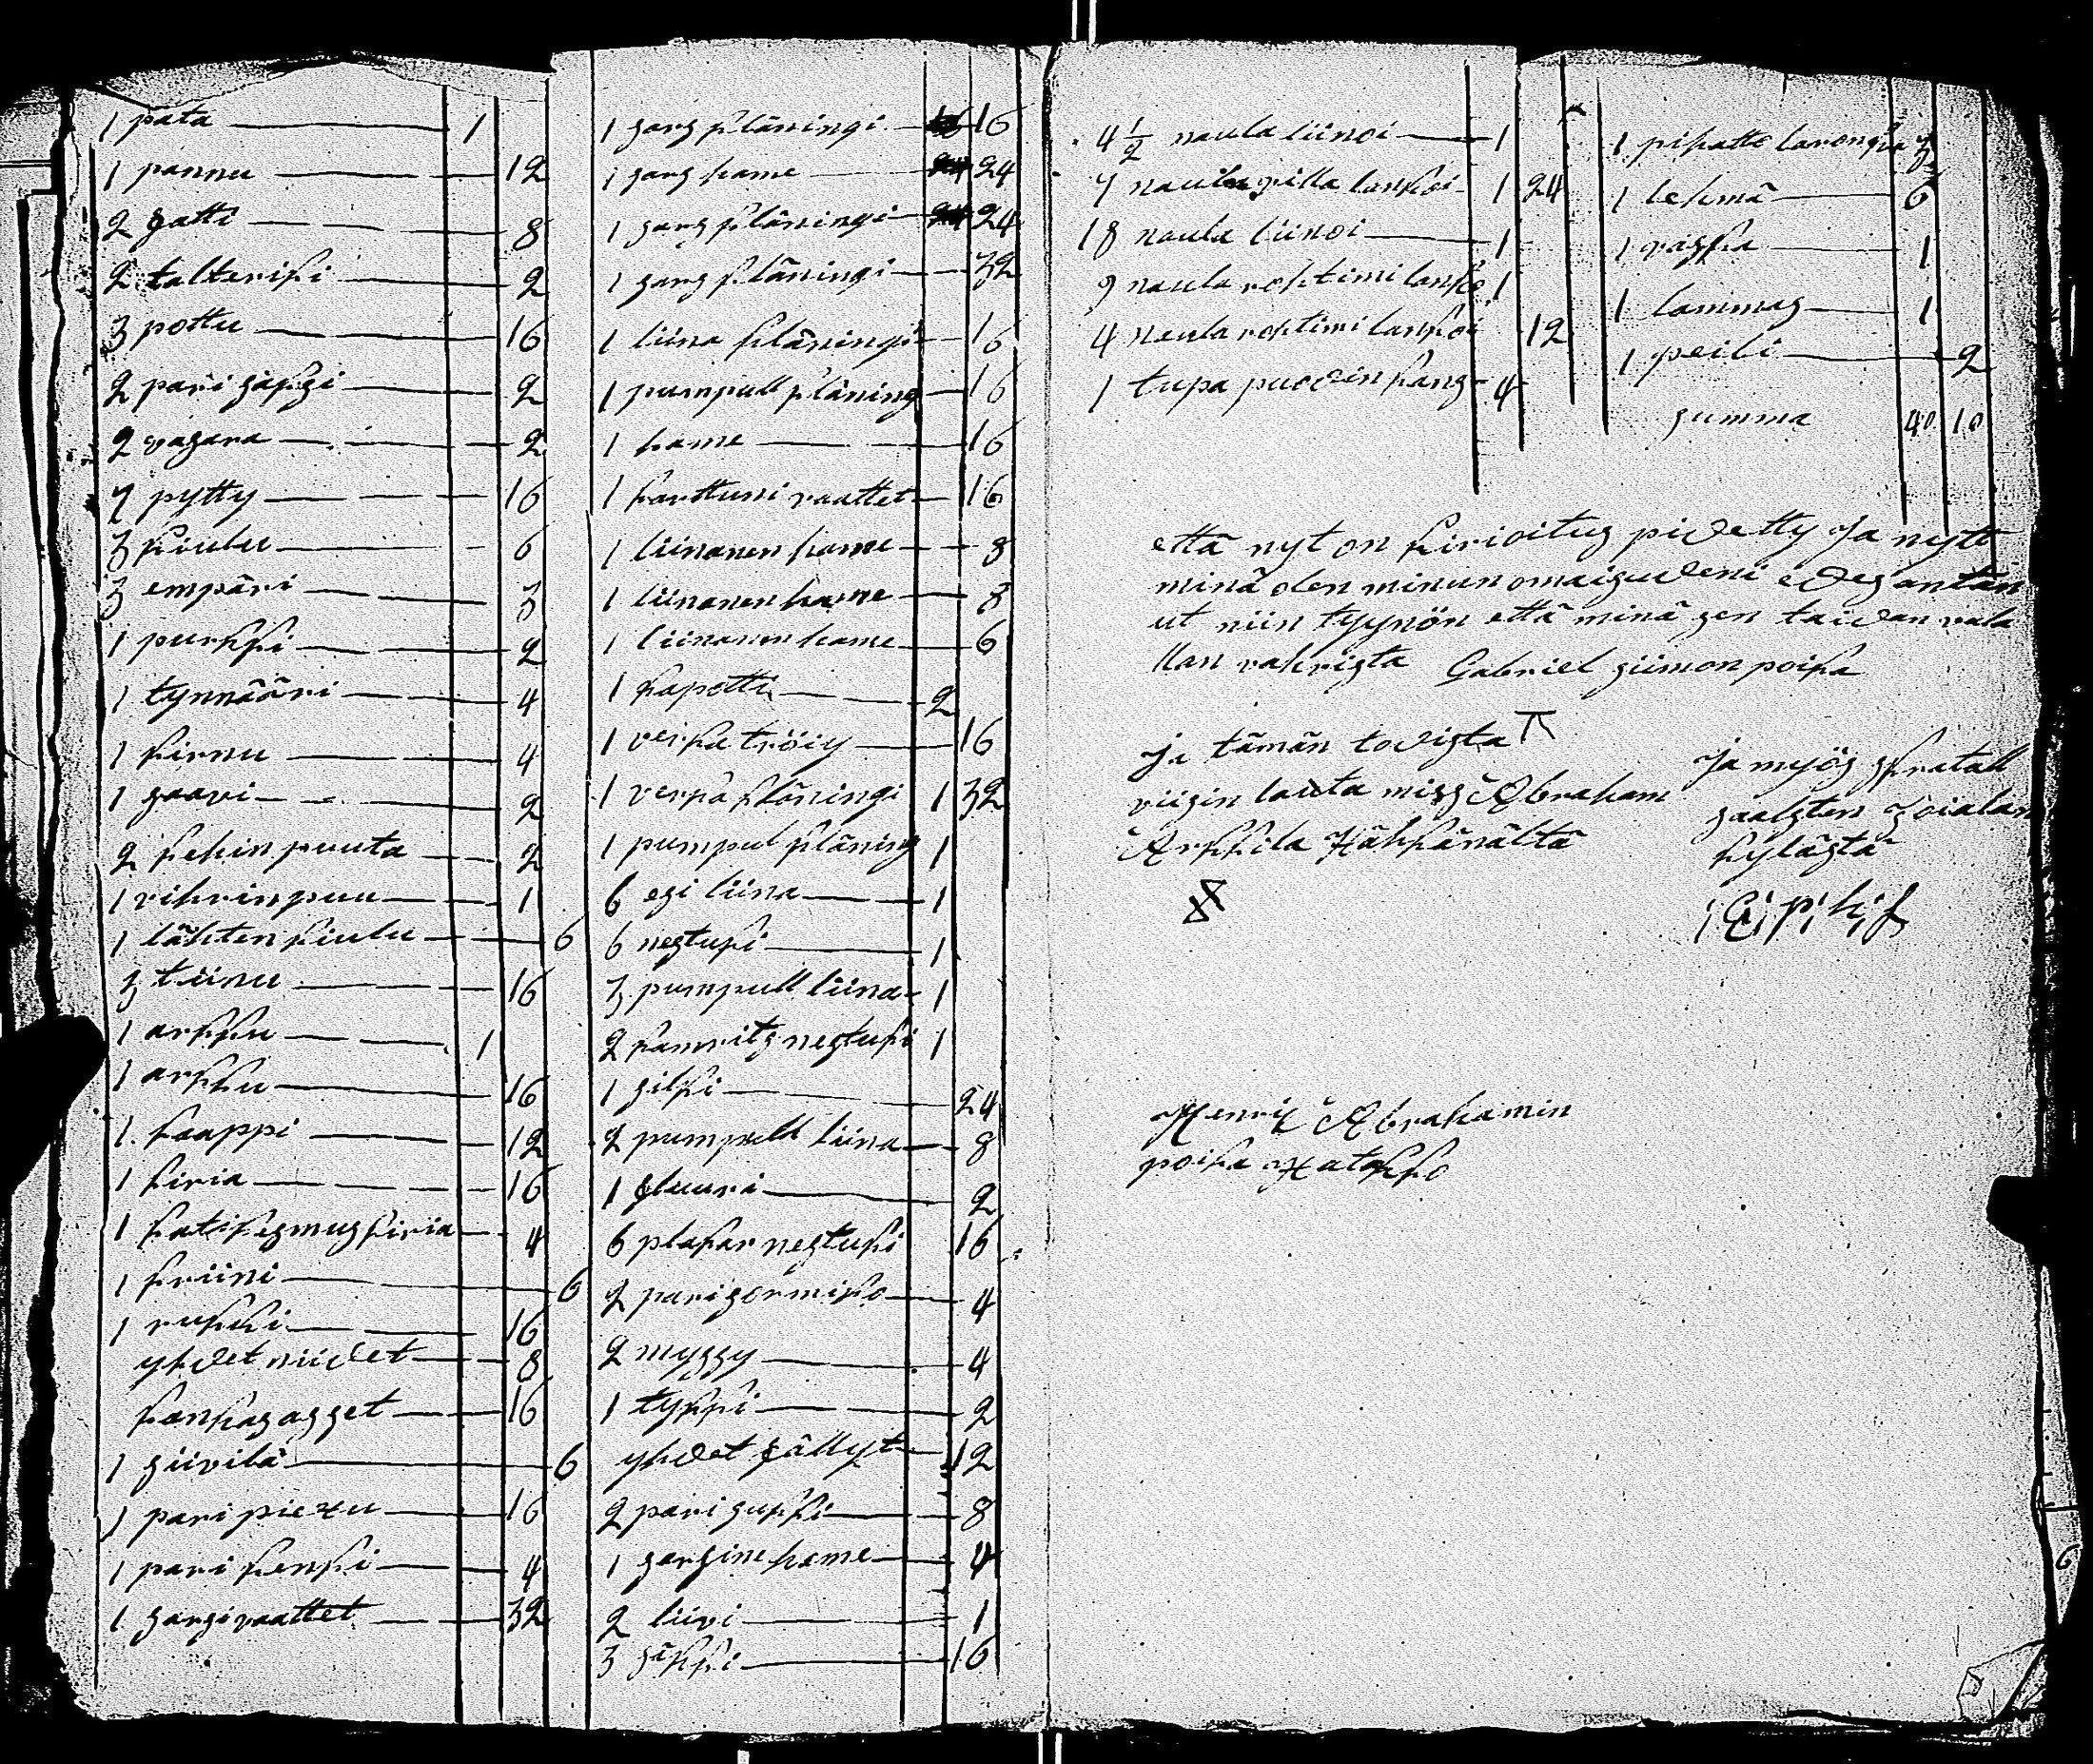 1 pata 1
1 pannu 12
2 satti 8
2 talteriki 2
3 pottu 16
2 pari säksi 2
2 vasara 2
7 pytty 16
3 kiulu 6
3 empäri 3
1 purkki 2
1 tynnääri 4
1 kirnu 4
1 saavi 2
2 kehin puuta 2
1 vihrinpuu 1
1 lähten kiulu 6
3 tiinu 16
1 arkku 1
1 arkku 16
1 kaappi 12
1 kiria 16
1 katikesmus kiria 4
1 kriini 6
1 rukki 16
yhdet niidet 8
kankas asset 16
1 siivilä 6
1 pari piexu 16
1 pari kenki 4
1 sarsi vaattet 32
1 sars kläningi 16
1 sars hame 24
1 sars kläningi 24
1 sars kläningi 32
1 liina kläningi 16
1 pumpull kläning 16
1 hame 16
1 karttuni vaattet 16
1 liinanen hame 8
1 liinanen hame 8
1 liinanen hame 6
1 kapotti 2
1 verka tröiy 16
1 verka kläningi 1 32
1 pumpul kläning 1
6 esi liina 1
6 nestuki 1
3 pumpull liina 1
2 kamrits nestuki 1
1 silki 24
2 pumpuld liina 8
1 sluuri 2
6 plakar nestuki 16
2 pari sormiko 4
2 myssy 4
1 tykki 2
yhdet fällyt 12
2 pari sukki 8
1 sarsine hame 4
2 liivi 1
3 säkki 16
4 1/2 naula liinoi 1
7 naula villa lankoi 1 24
18 naula liinoi 1
9 naula rohtimi lanko 1
4 naula rohtimi lankoi 12
1 tupa puodin kans 4
1 pihatto 3
1 lehmä 6
1 vaska 1
1 lammas 1
1 peili 2
summa 40 10
että nyt on kirioitus pidetty Ja nytt
minä olen minun omaisudeni edesantan
ut niin tyynön että minä sen taidan vala
llan vahvista Gabriel siimon poika
ja tämän todista
viisin lauta miss Abraham
Arkkila Hähkänältä
Ja myös skratall
saalsten Joialan
kylästä
Henrik Abrahamin
poika Hatakko